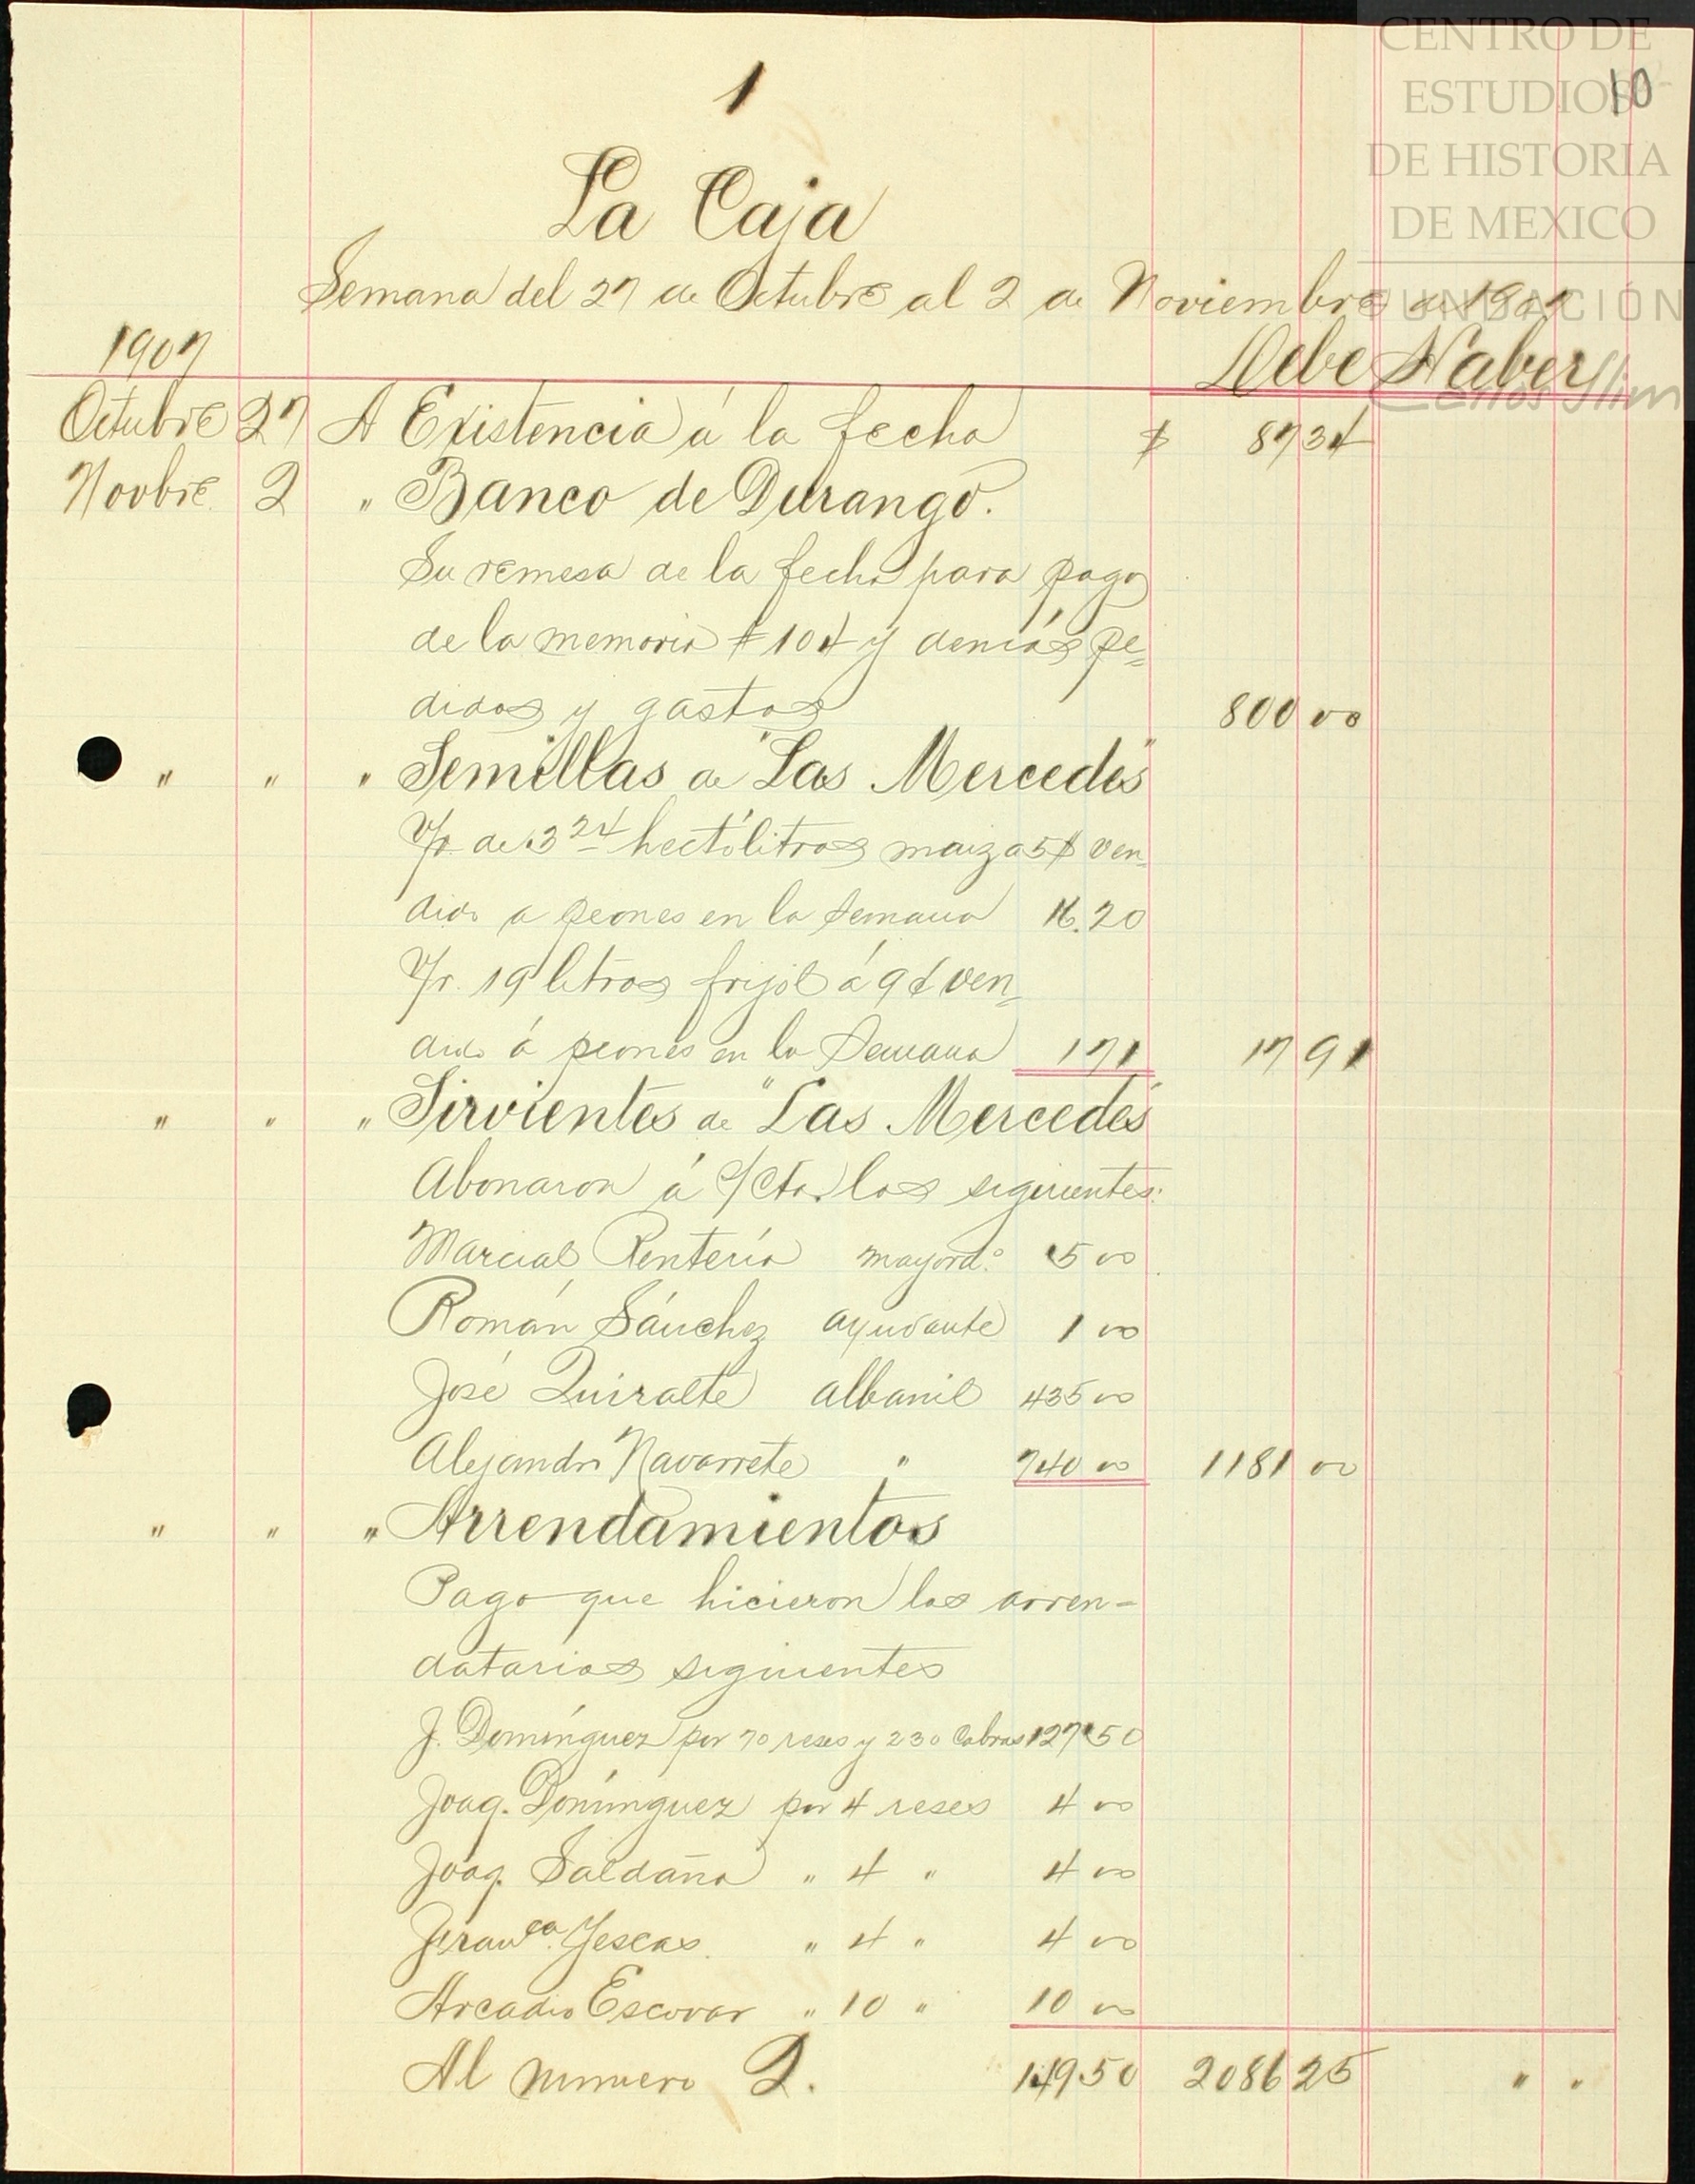 CENTRO DE
ESTUDIOS
DE HISTORIA
DE MEXICO
FUNDACIÓN
Carlos Slim
10
1
La Caja
Semana del 27 de Octubre al 2 de Noviembre de 1907
1907 Debe Haber
Octubre 27 A Existencia á la fecha $ 87 34
Novbre. 2 " Banco de Durango.
Su remesa de la fecha para pago
de la memoria # 104 y demás pe=
didos y gastos 800 00
" " " Semillas de "Las Mercedes"
V/r. de 3 24 hectólitros maiz a 5$ ven=
dido a peones en la semana 16.20
V/r. 19 litros frijol á 9¢ ven=
dido á peones en la semana 1 71 17 91
" " " Sirvientes de "Las Mercedes"
Abonaron á c/cta. los siguientes:
Marcial Rentería mayord.º 5 00
Román Sánchez ayudante 1 00
José Quiralte albanil 435 00
Alejandro Navarrete " 740 00 1181 00
" " " Arrendamientos
Pago que hicieron los arren-
datarios siguientes
J. Domínguez por 70 reses y 230 Cabras 127 50
Joaq. Domínguez por 4 reses 4 00
Joaq. Saldaña " 4 " 4 00
Franca. Yescas. " 4 " 4 00
Arcadio Escovar " 10 " 10 00
Al numero 2. 149 50 2086 25 " "